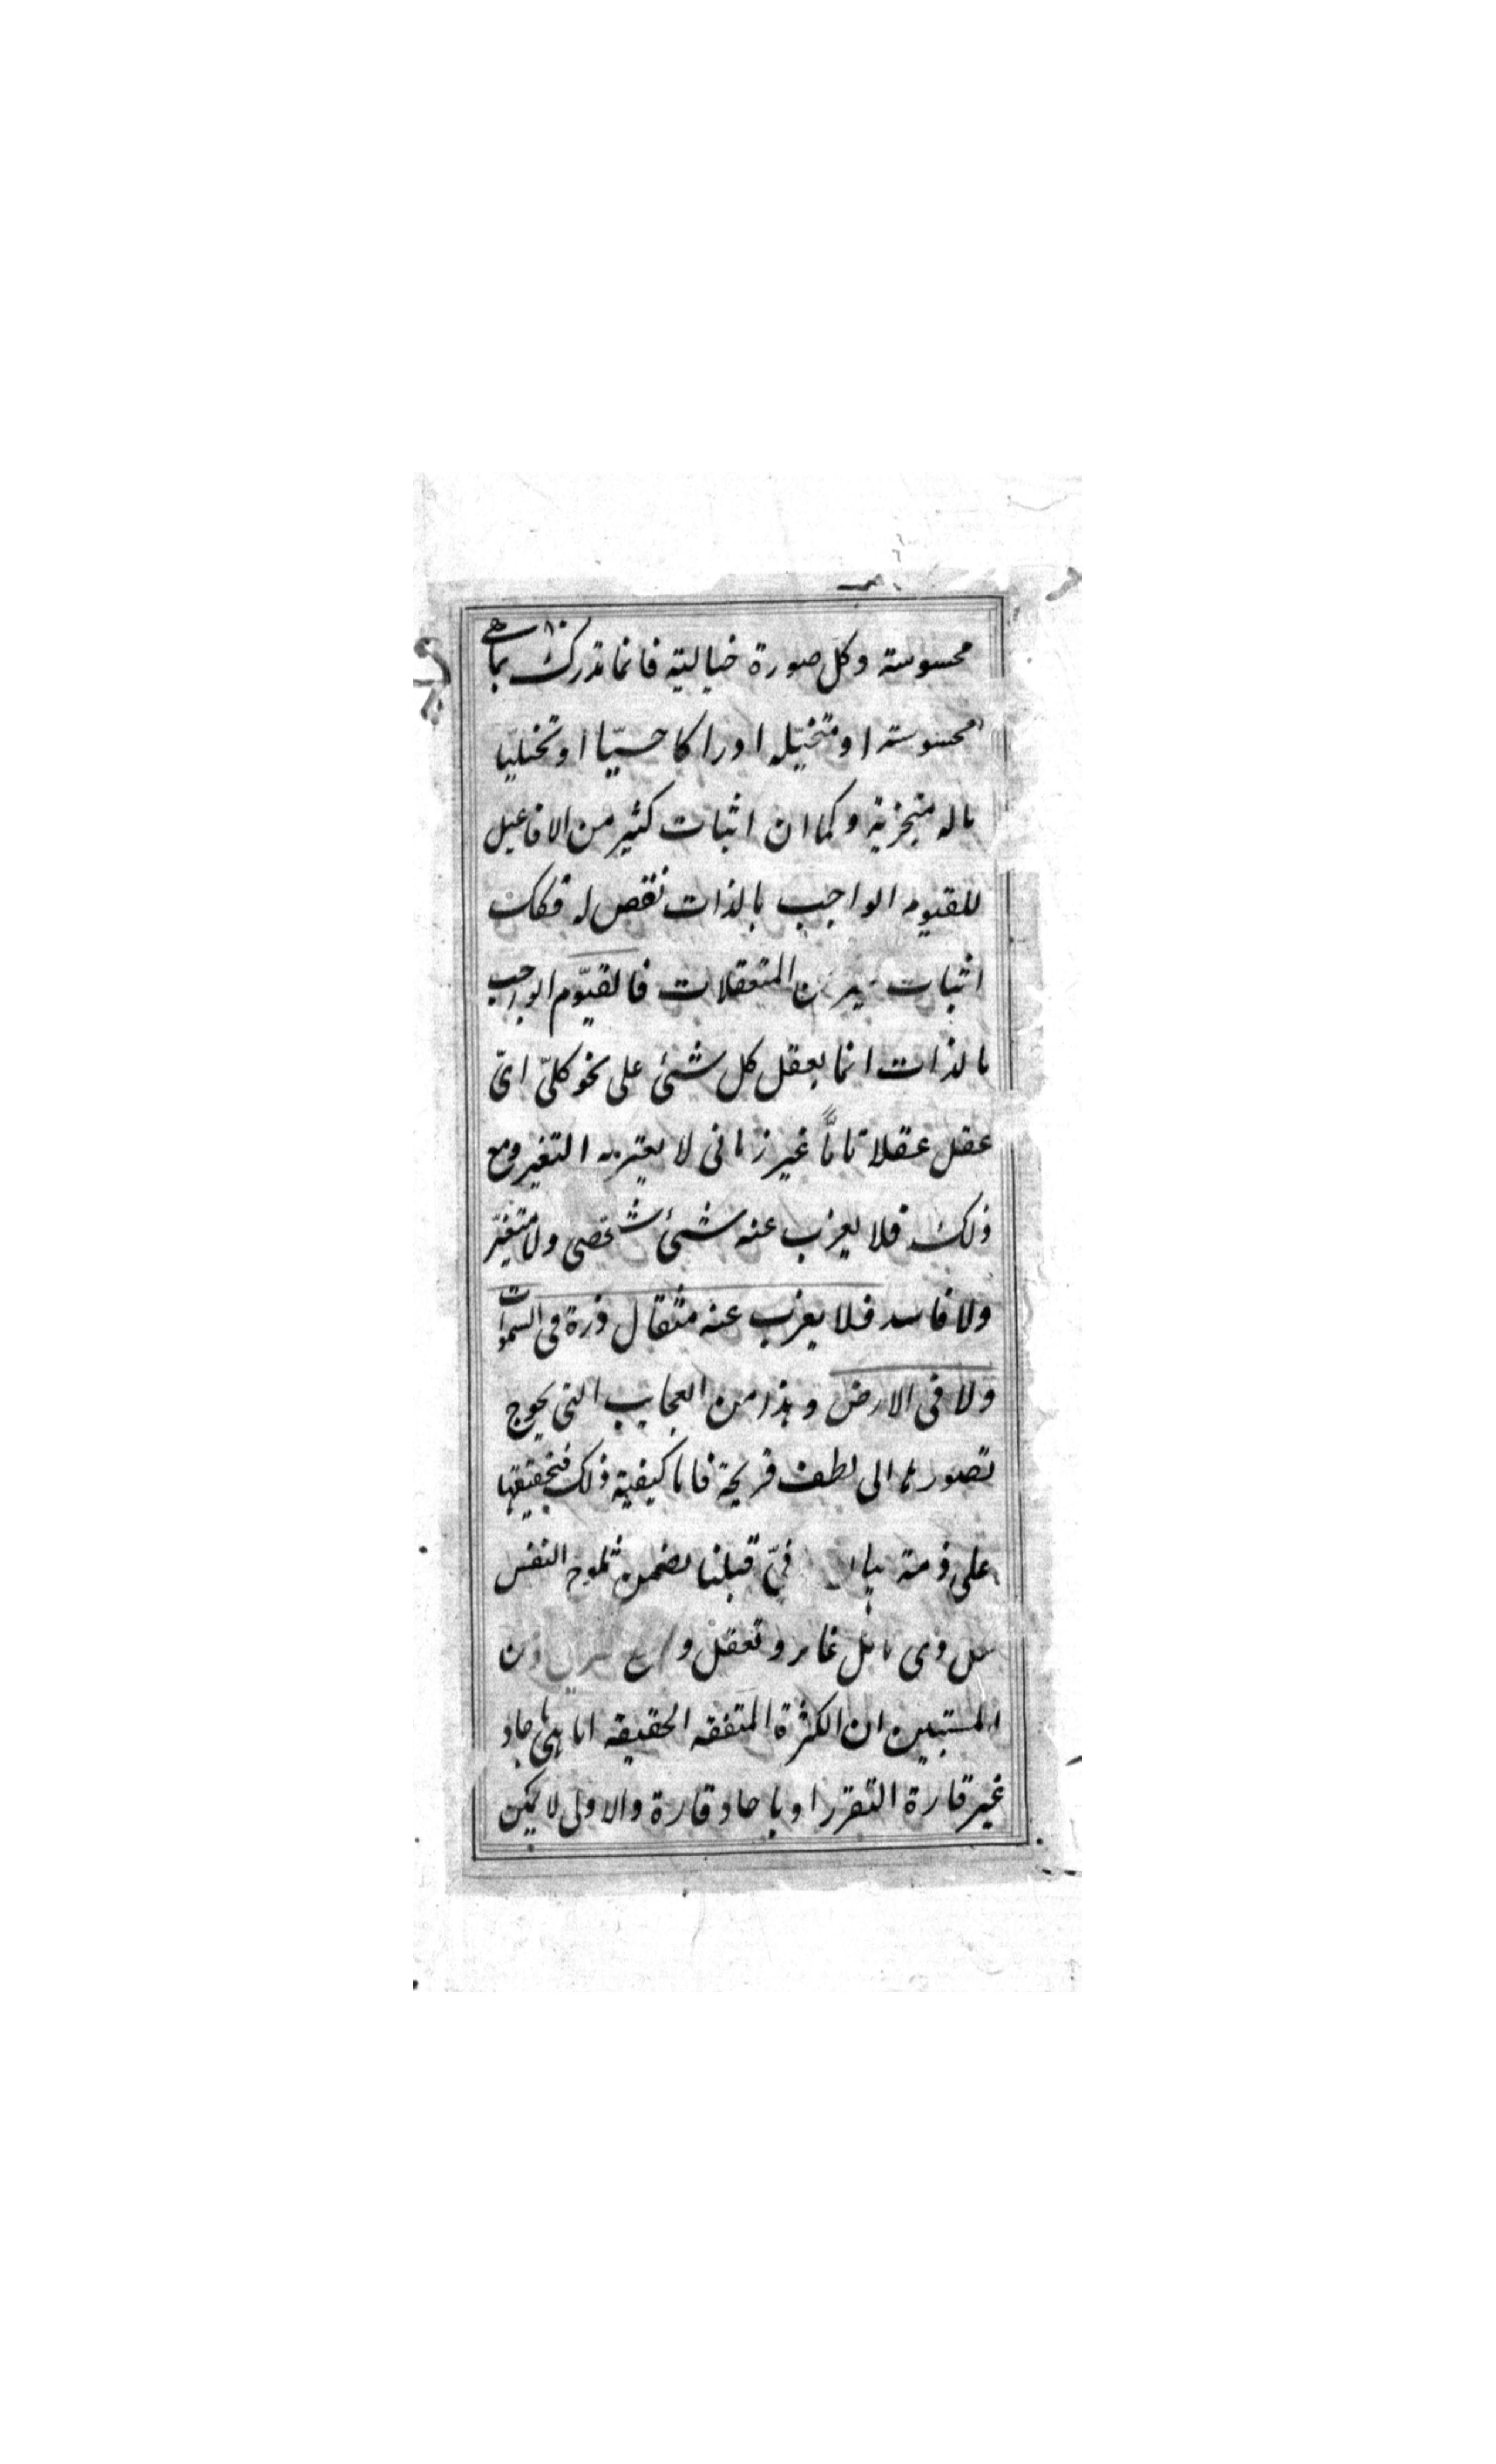 محسوسته وكل صورة خيالية فانما تدرك بما هى
محسوسته او متخيله ادراكا حسيّا او تخيليا
باله متجزية وكما ان اثبات كثير من الافاعيل
للقيوم الواجب بالذات نقص له فكك
اثبات المتعقلات فالقيّوم الواجب
بالذات انما يعقل كل شئ على نحو كلىّ اىّ
عقل عقلا تامّاً غير زمانى لا يعتريه التغير ومع
ذلك فلا يعزب عنه شئ شخصى ولا متغيّر
ولا فاسد فلا يعزب عنه مثقال ذرة فى السموات
ولا فى الارض وهذا من العجايب التى يحوج
تصورها الى لطف قريحة فاما كيفية ذلك فتحقيقها
على ذمة قبلنا يضمن ثلوج النفس
ذى تامل غاير وتعقل
المستبين ان الكثرة المتفقه الحقيقه اما هى باحاد
غير قارة التقرر او باحاد قارة والاولى لا يمكن